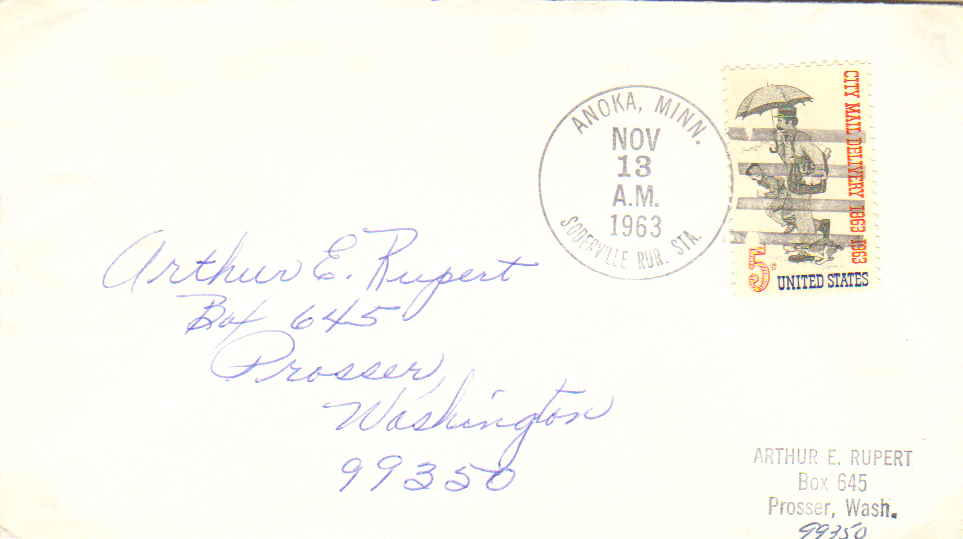 ANOKA, MINN.
NOV
13
A.M.
1963
SODERVILLE RUR. STA.
CITY MAIL DELIVERY 1863 1963
5c
UNITED STATES
Arthur E. Rupert
Box 645
Prosser,
Washington
99350
ARTHUR E. RUPERT
Box 645
Prosser, Wash.
99350